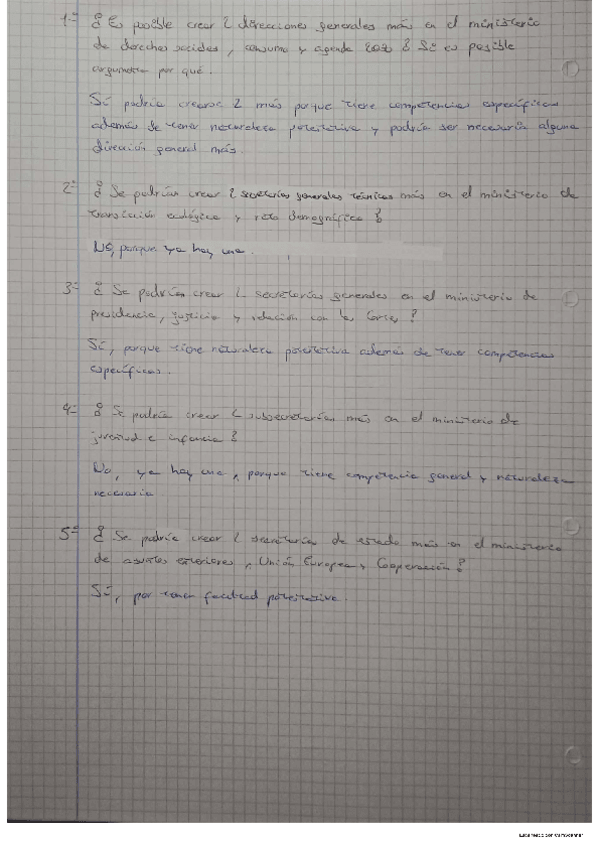 1.- ¿Es posible crear 2 direcciones generales más en el ministerio
de derechos sociales, consumo y agenda 2030? Si es posible
argumenta por qué.
Sí podría crearse 2 más porque tiene competencias específicas
además de tener naturaleza potestativa y podría ser necesaria alguna
dirección general más.
2º ¿Se podrían crear 2 secretarías generales técnicas más en el ministerio de
transición ecológica y reto demográfico?
No, porque ya hay una.
3º ¿Se podrían crear 2 secretarías generales en el ministerio de
presidencia, justicia y relación con las Cortes?
Sí, porque tiene naturaleza potestativa además de tener competencias
específicas.
4º ¿Se podría crear 2 subsecretarías más en el ministerio de
juventud e infancia?
No, ya hay una, porque tiene competencia general y naturaleza
necesaria
5º ¿Se podría crear 2 secretarías de estado más en el ministerio
de asuntos exteriores, Unión Europea y Cooperación?
Sí, por tener facultad potestativa.